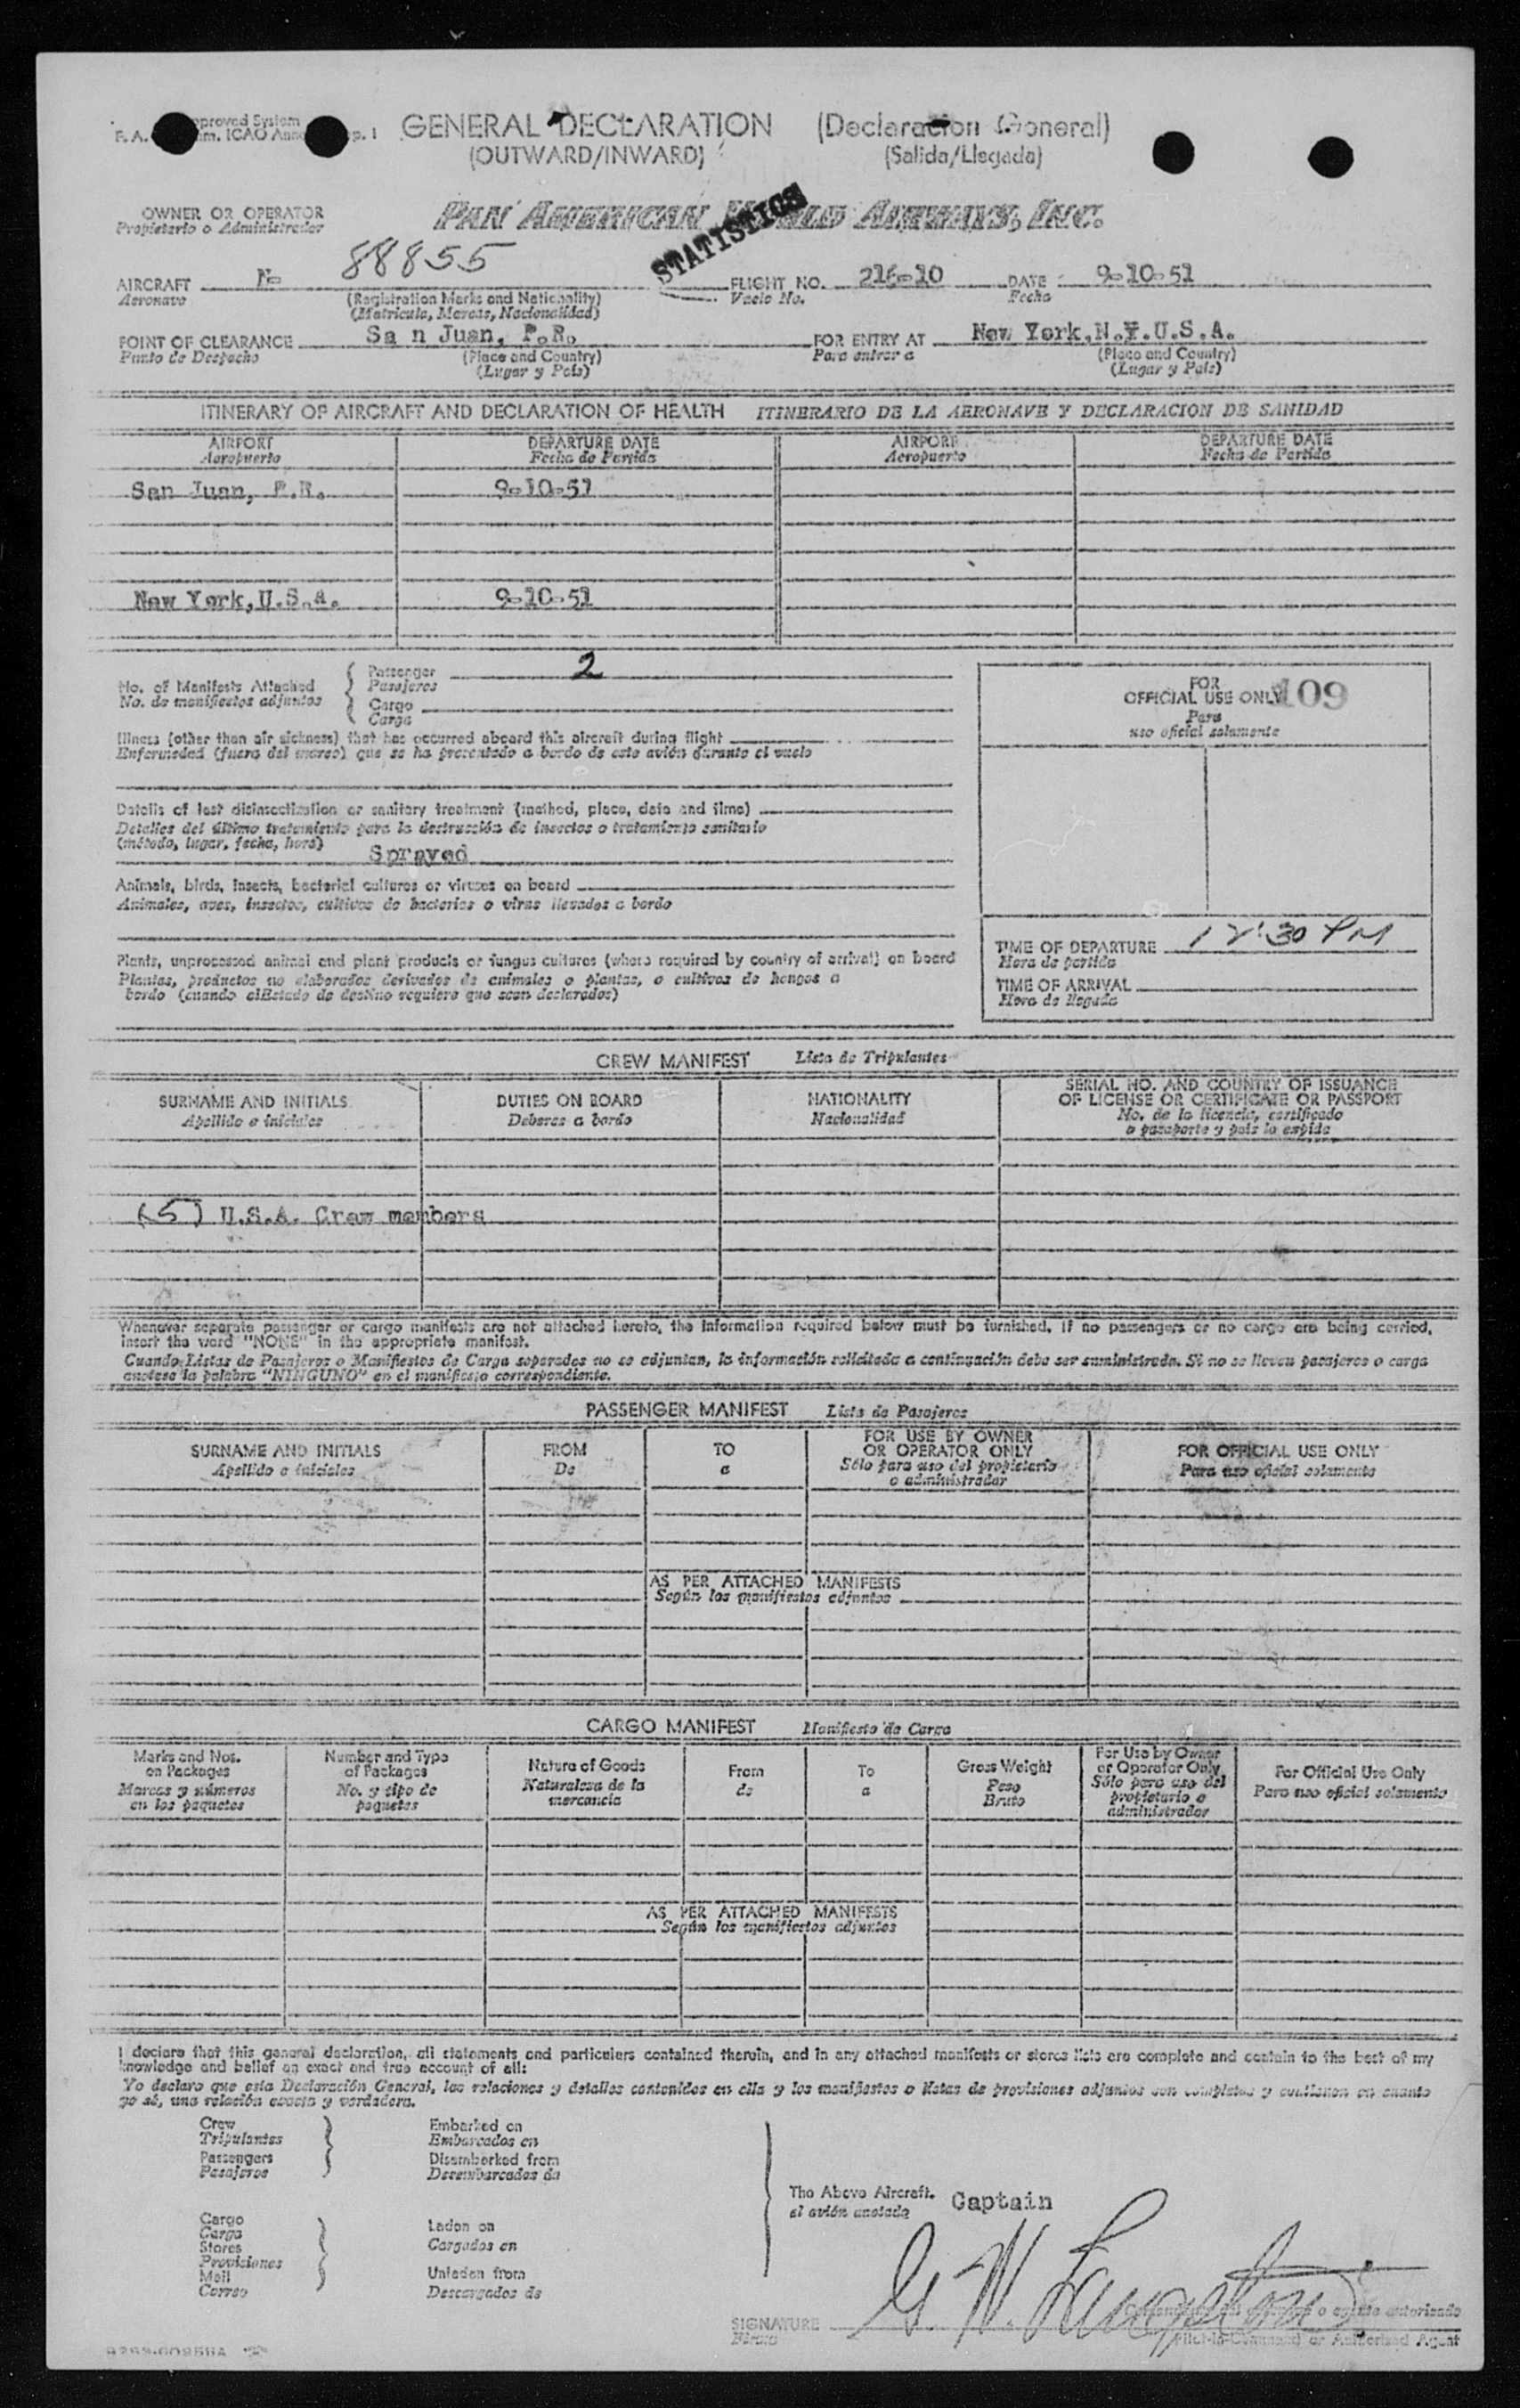 GENERAL DECLARATION (Declaracion General)
(OUTWARD/INWARD) (Salida/Llegada)
OWNER OR OPERATOR
Propietario o Administrador
PAN AMERICAN WORLD AIRWAYS, INC.
STATISTICS
AIRCRAFT N- 88855 FLIGHT NO. 216-10 DATE 9-10-51
Aeronave (Registration Marks and Nationality) Vuelo No. Fecha
(Matricula, Marcas, Nacionalidad)
POINT OF CLEARANCE Sa n Juan, P.R. FOR ENTRY AT New York,N.Y.U.S.A.
Punto de Despacho (Place and Country) Para entrar a (Place and Country)
(Lugar y País) (Lugar y País)
ITINERARY OF AIRCRAFT AND DECLARATION OF HEALTH ITINERARIO DE LA AERONAVE Y DECLARACION DE SANIDAD
AIRPORT DEPARTURE DATE AIRPORT DEPARTURE DATE
Aeropuerto Fecha de Partida Aeropuerto Fecha de Partida
San Juan, P.R. 9-10-51
New York,U.S.A. 9-10-51
No. of Manifests Attached
No. de manifiestos adjuntos
Passenger 2
Pasajeros
Cargo
Carga
FOR
OFFICIAL USE ONLY 109
Para
uso oficial solamente
Illness (other than air sickness) that has occurred aboard this aircraft during flight
Enfermedad (fuera del mareo) que se ha presentado a bordo de este avión durante el vuelo
Details of last disinsectization or sanitary treatment (method, place, date and time)
Detalles del último tratamiento para la destrucción de insectos o tratamiento sanitario
(método, lugar, fecha, hora) Sprayed
Animals, birds, insects, bacterial cultures or viruses on board
Animales, aves, insectos, cultivos de bacterias o virus llevados a bordo
TIME OF DEPARTURE 12:30 PM
Hora de partida
TIME OF ARRIVAL
Hora de llegada
Plants, unprocessed animal and plant products or fungus cultures (where required by country of arrival) on board
Plantas, productos no elaborados derivados de animales o plantas, o cultivos de hongos a
bordo (cuando elEstado de destino requiere que sean declarados)
CREW MANIFEST Lista de Tripulantes
SURNAME AND INITIALS DUTIES ON BOARD NATIONALITY SERIAL NO. AND COUNTRY OF ISSUANCE
OF LICENSE OR CERTIFICATE OR PASSPORT
Apellido e iniciales Deberes a bordo Nacionalidad No. de la licencia, certificado
o pasaporte y país lo expide
(5) U.S.A. Crew members
Whenever separate passenger or cargo manifests are not attached hereto, the information required below must be furnished. If no passengers or no cargo are being carried,
insert the word "NONE" in the appropriate manifest.
Cuando Listas de Pasajeros o Manifiestos de Carga separados no se adjuntan, la información solicitada a continuación debe ser suministrada. Si no se llevan pasajeros o carga
anotese la palabra "NINGUNO" en el manifiesto correspondiente.
PASSENGER MANIFEST Lista de Pasajeros
SURNAME AND INITIALS FROM TO FOR USE BY OWNER
OR OPERATOR ONLY FOR OFFICIAL USE ONLY
Apellido e iniciales De a Sólo para uso del propietario
o administrador Para uso oficial solamente
AS PER ATTACHED MANIFESTS
Según los manifiestos adjuntos
CARGO MANIFEST Manifiesto de Carga
Marks and Nos.
on Packages
Marcas y números
en los paquetes
Number and Type
of Packages
No. y tipo de
paquetes
Nature of Goods
Naturaleza de la
mercancía
From
de
To
a
Gross Weight
Peso
Bruto
For Use by Owner
or Operator Only
Sólo para uso del
propietario o
administrador
For Official Use Only
Para uso oficial solamente
AS PER ATTACHED MANIFESTS
Según los manifiestos adjuntos
I declare that this general declaration, all statements and particulars contained therein, and in any attached manifests or stores lists are complete and contain to the best of my
knowledge and belief an exact and true account of all:
Yo declaro que esta Declaración General, las relaciones y detalles contenidos en ella y los manifiestos o listas de provisiones adjuntos son completos y contienen en cuanto
yo sé, una relación exacta y verdadera.
Crew Embarked on
Tripulantes Embarcados en
Passengers Disembarked from
Pasajeros Desembarcados de
The Above Aircraft. Captain
el avión anotado
Cargo
Carga
Laden on
Stores
Cargados en
Provisiones
Mail Unladen from
Correo Descargados de
SIGNATURE G. W. Langston
Firma
Pilot-in-Command or Authorized Agent